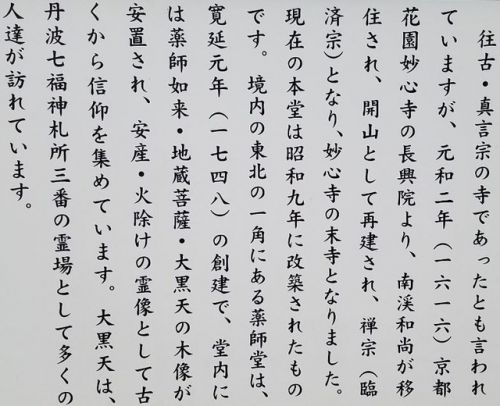 往古・真言宗の寺であったとも言われ
ていますが、元和二年（一六一六）京都
花園妙心寺の長興院より、南渓和尚が移
住され、開山として再建され、禅宗（臨
済宗）となり、妙心寺の末寺となりました。
現在の本堂は昭和九年に改築されたもの
です。境内の東北の一角にある薬師堂は、
寛延元年（一七四八）の創建で、堂内に
は薬師如来・地蔵菩薩・大黒天の木像が
安置され、安産・火除けの霊像として古
くから信仰を集めています。大黒天は、
丹波七福神札所三番の霊場として多くの
人達が訪れています。